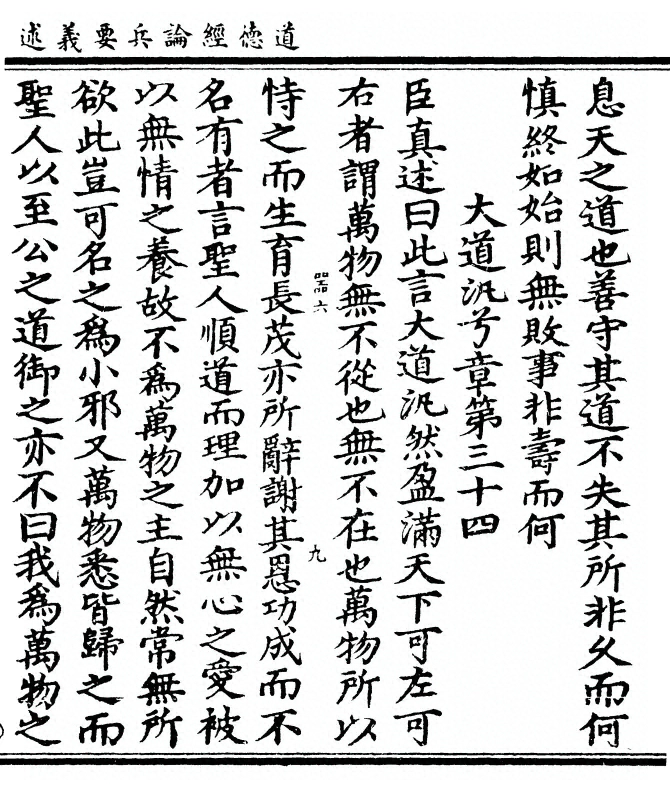 道德經論兵要義述
息天之道也善守其道不失其所非久而何
慎終如始則無敗事非壽而何
大道汎兮章第三十四
臣真述曰此言大道汎然盈滿天下可左可
右者謂萬物無不從也無不在也萬物所以
器六
九
恃之而生育長茂亦所辭謝其恩功成而不
名有者言聖人順道而理加以無心之愛被
以無情之養故不為萬物之主自然常無所
欲此豈可名之為小邪又萬物悉皆歸之而
聖人以至公之道御之亦不曰我為萬物之